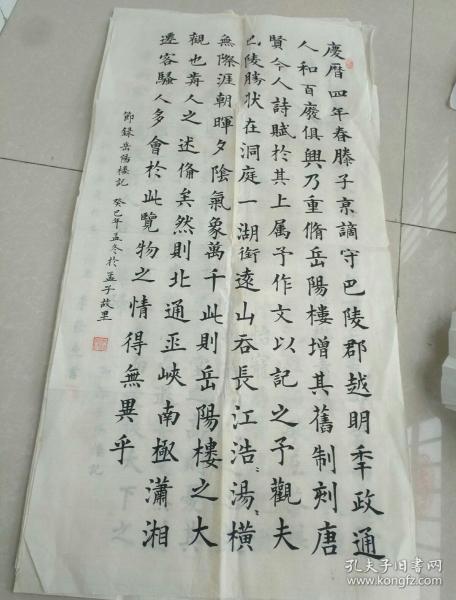 慶曆四年春滕子京謫守巴陵郡越明秊政通
人和百廢俱興乃重脩岳陽樓增其舊制刻唐
賢今人詩賦於其上属予作文以記之予觀夫
巴陵勝狀在洞庭一湖銜遠山吞長江浩〻湯〻橫
無際涯朝暉夕陰氣象萬千此則岳陽樓之大
觀也前人之述俻矣然則北通巫峽南極瀟湘
遷客騷人多會於此覽物之情得無異乎
節錄岳陽樓記 癸巳年孟冬於孟子故里
孔夫子旧书网
www.kongfz.com